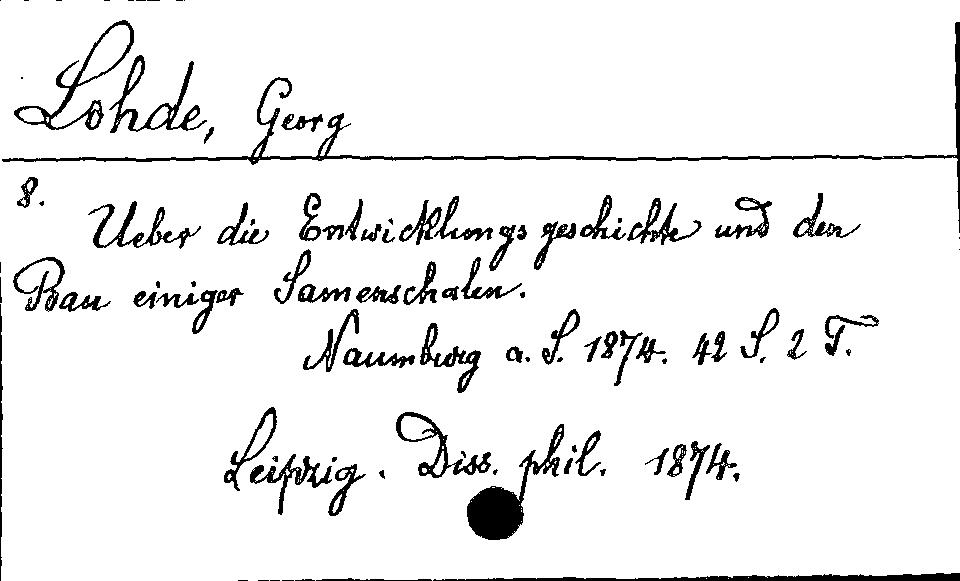 Lohde, Georg
8.
Ueber die Entwicklungsgeschichte und den
Bau einiger Samenschalen.
Naumburg a. S. 1874. 42 S. 2 T.
Leipzig. Diss. phil. 1874.